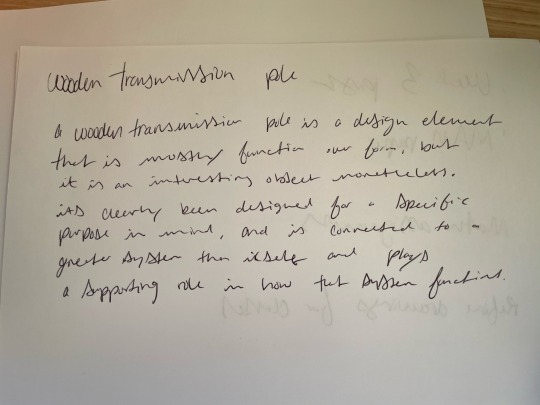 wooden transmission pole
a wooden transmission pole is a design element
that is mostly function over form, but
it is an interesting object nonetheless.
its clearly been designed for a specific
purpose in mind, and is connected to a
greater system then itself and plays
a supporting role in how that system functions.